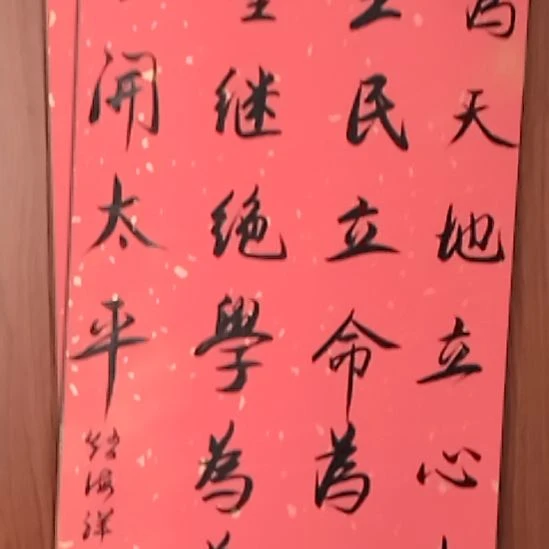 為天地立心
民立命為
继绝學為
開太平
海祥